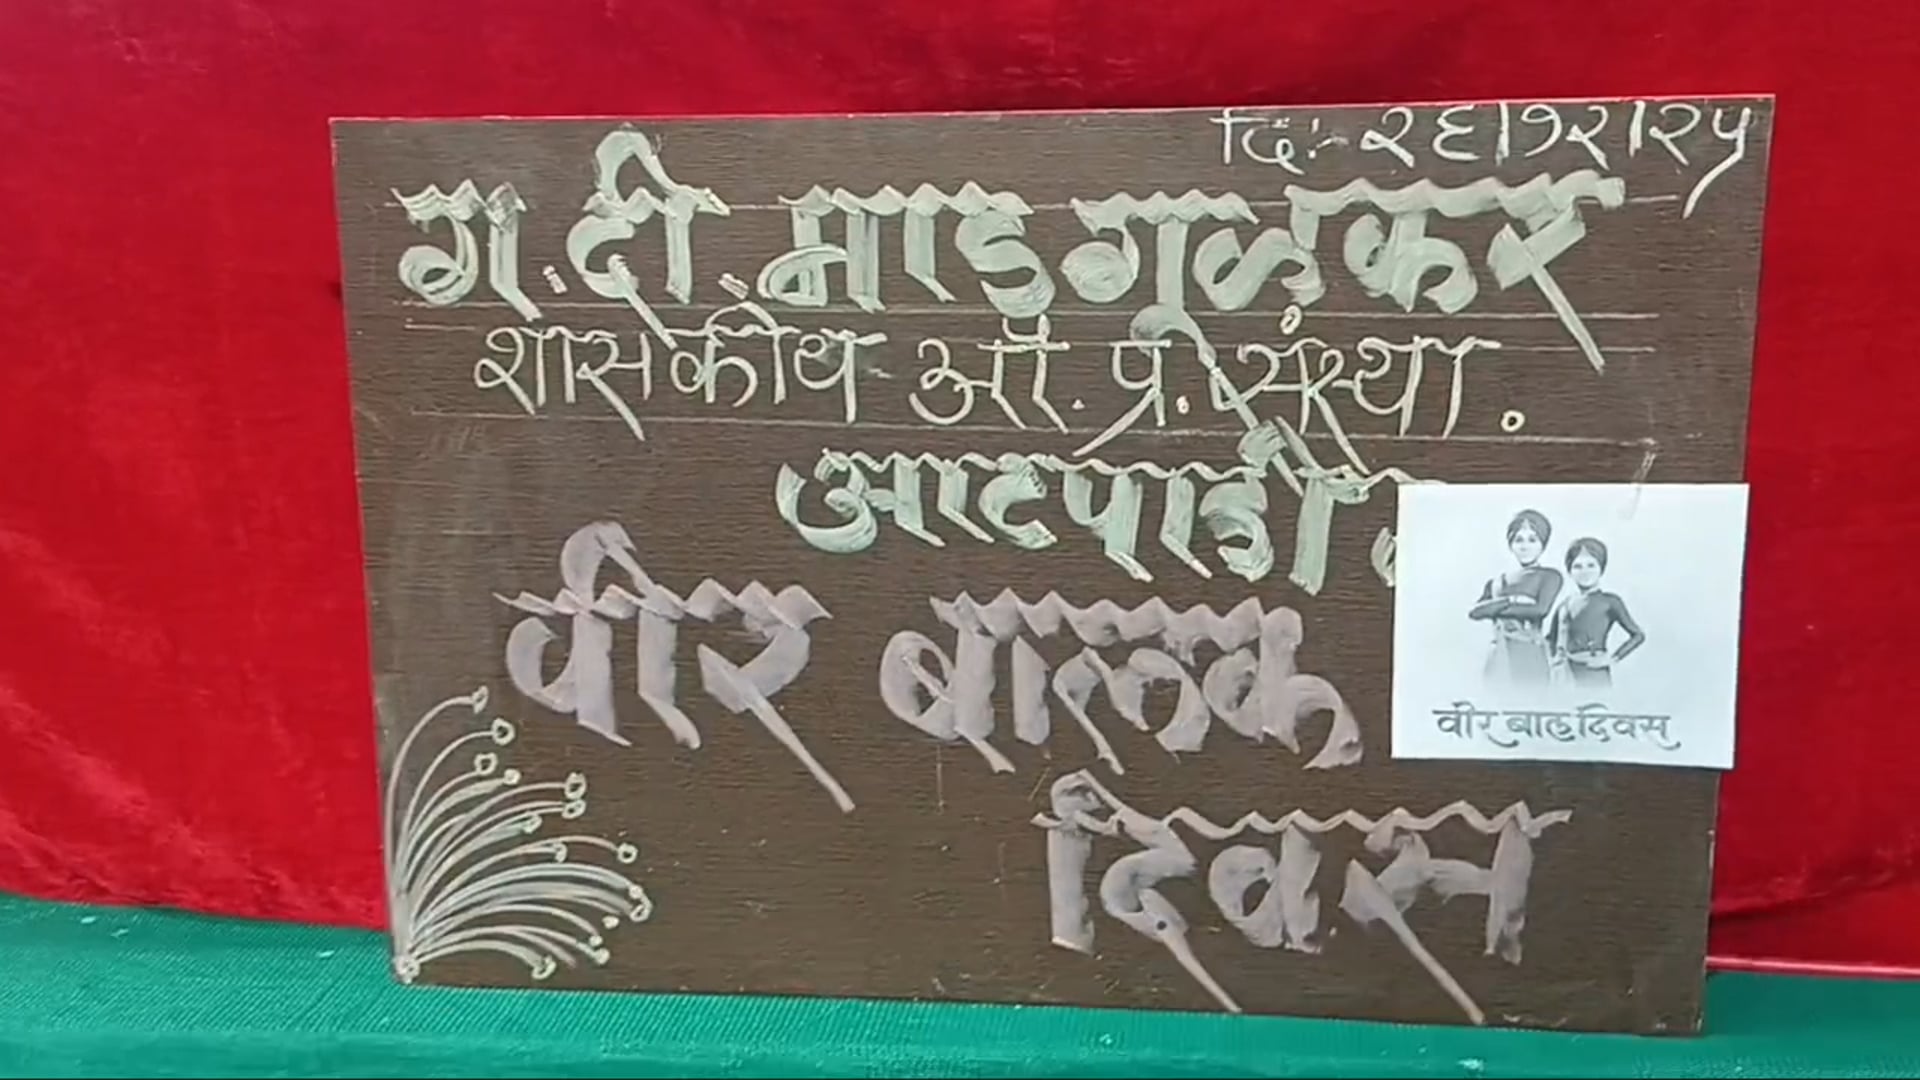 दि:- २६।१२।२५
ग.दी.माडगूळकर
शासकीय औ. प्र. संस्था.
आटपाडी
वीर बालक
दिवस
वीर बाल दिवस